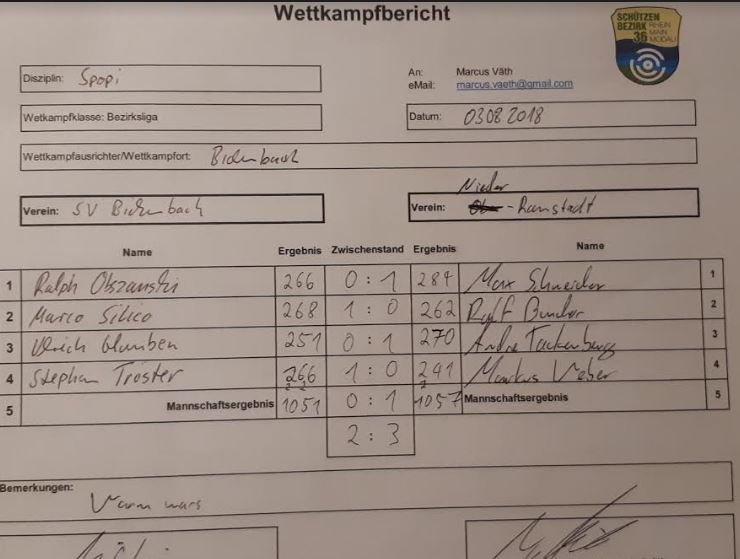 Wettkampfbericht
SCHÜTZEN
BEZIRK RHEIN
36 MAIN
MODAU
Disziplin: Spopi
An: Marcus Väth
eMail: marcus.vaeth@gmail.com
Wetkampfklasse: Bezirksliga
Datum: 03082018
Wettkampfausrichter/Wettkampfort: Bickenbach
Nieder
Verein: SV Bickenbach
Verein: -Ramstadt
Name Ergebnis Zwischenstand Ergebnis Name
1 Ralph 266 0 : 1 284 Max Schneider 1
2 Marco Silico 268 1 : 0 262 Ralf 2
3 Ulrich 251 0 : 1 270 Andre Tackenberg 3
4 Stephan Troster 266 1 : 0 241 Markus Weber 4
5 Mannschaftsergebnis 1051 0 : 1 1057 Mannschaftsergebnis 5
2 : 3
Bemerkungen:
Warm wars